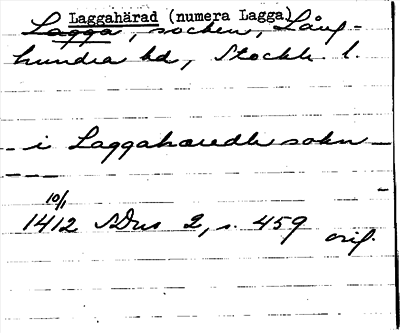 Laggahärad (numera Lagga)
Lagga, socken, Lång-
hundra hd, Stockh. l.
i Laggahæredh sokn
10/1
1412 SDns 2, s. 459
orig.